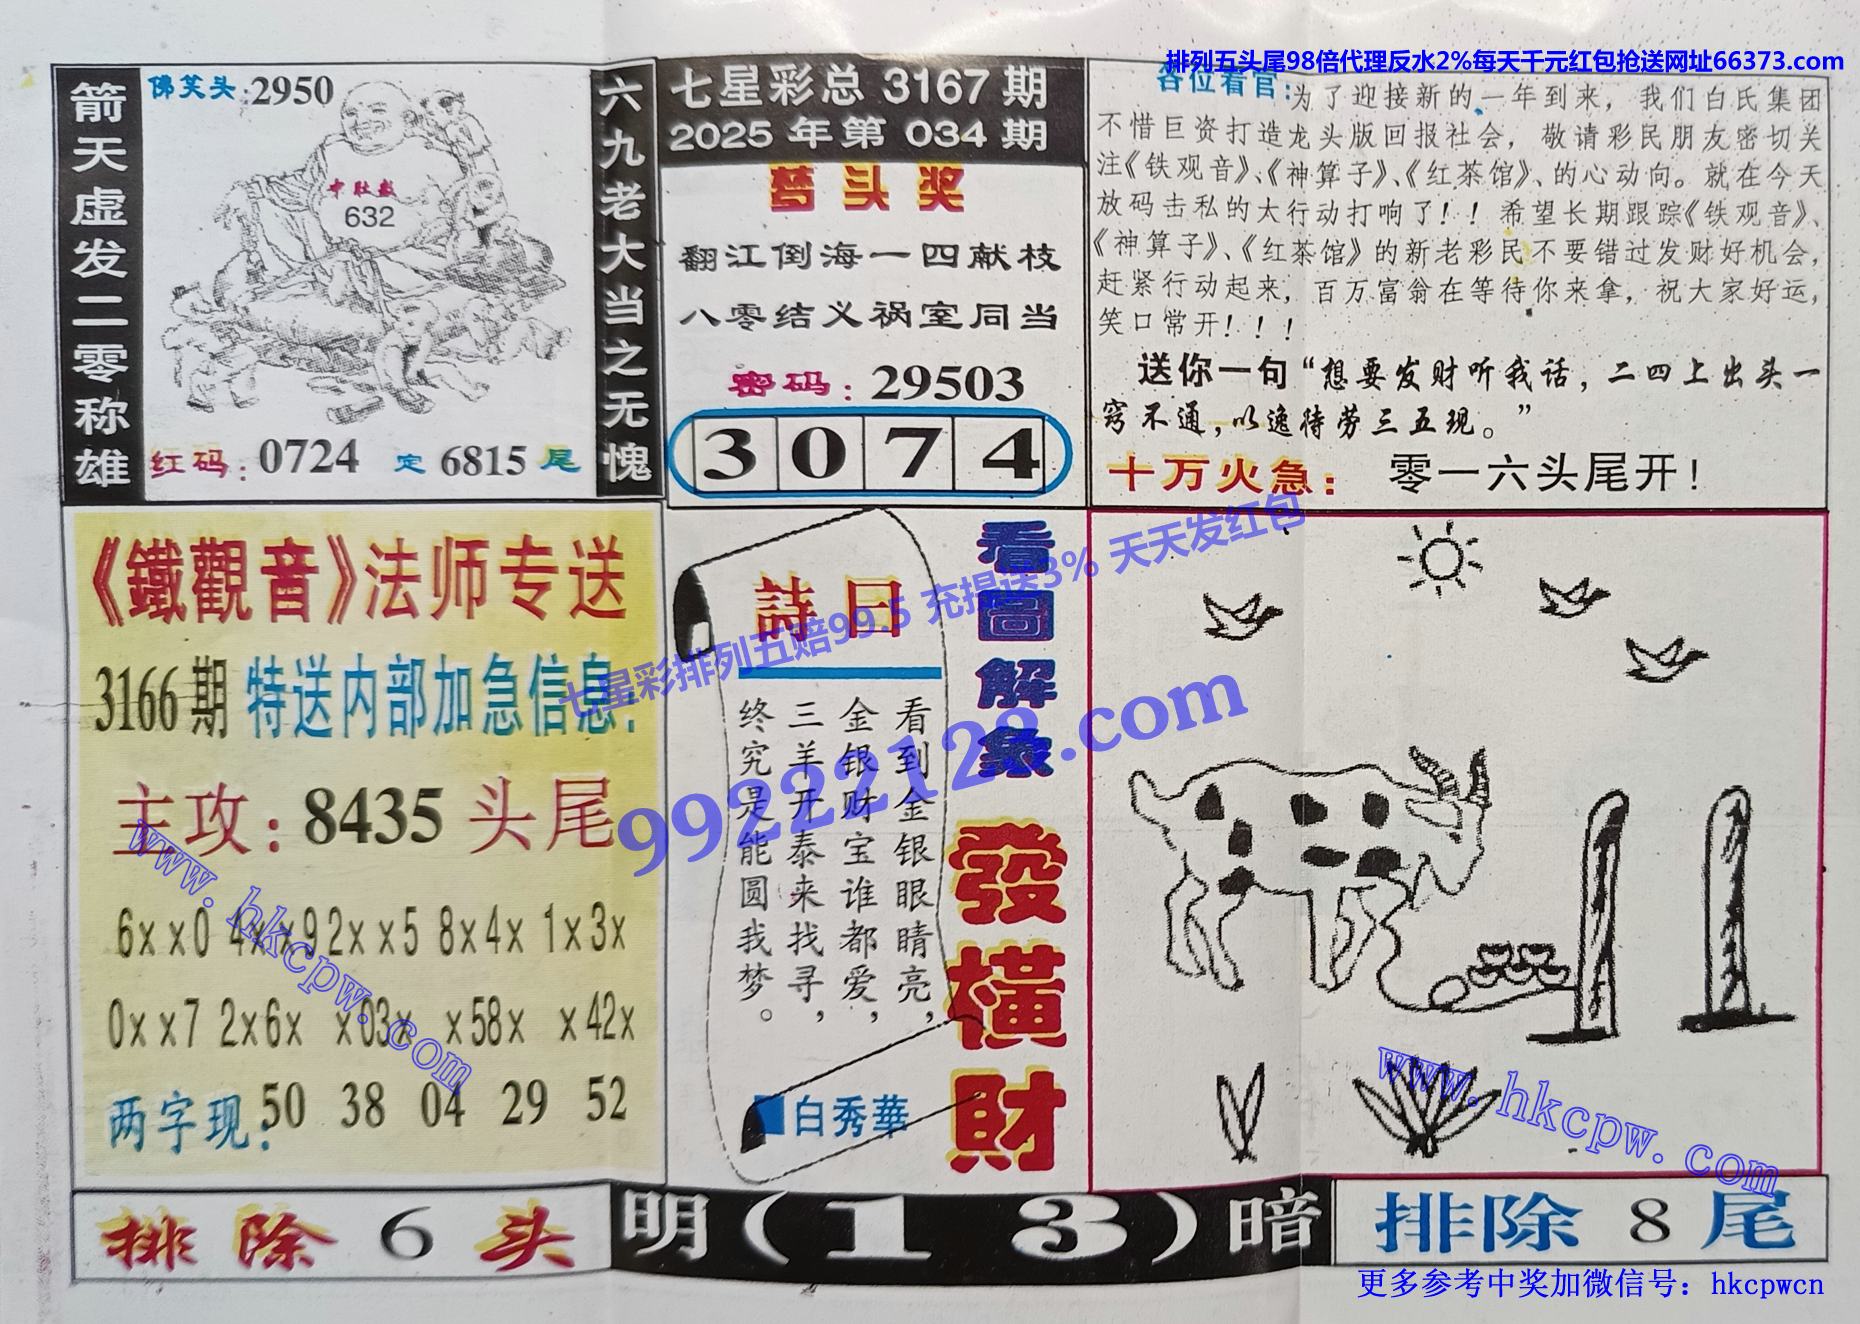 排列五头尾98倍代理反水2%每天千元红包抢送网址66373.com
箭天虚发二零称雄
佛笑头:2950
中肚数
632
红码:0724 定 6815 尾
六九老大当之无愧
七星彩总 3167 期
2025 年第 034 期
梦头奖
翻江倒海一四献枝
八零结义祸室同当
密码:29503
3 0 7 4
各位看官:为了迎接新的一年到来，我们白氏集团
不惜巨资打造龙头版回报社会，敬请彩民朋友密切关
注《铁观音》、《神算子》、《红茶馆》、的心动向。就在今天
放码击私的大行动打响了！！希望长期跟踪《铁观音》、
《神算子》、《红茶馆》的新老彩民不要错过发财好机会，
赶紧行动起来，百万富翁在等待你来拿，祝大家好运，
笑口常开！！！
送你一句“想要发财听我话，二四上出头一
窍不通，以逸待劳三五现。”
十万火急: 零一六头尾开！
《鐵觀音》法师专送
3166期 特送内部加急信息:
主攻: 8435 头尾
6xx0 4xx9 2xx5 8x4x 1x3x
0xx7 2x6x x03x x58x x42x
两字现: 50 38 04 29 52
詩曰
看到金银眼睛亮，
金银财宝谁都爱，
三羊开泰来找寻，
终究是能圆我梦。
白秀華
看圖解象
發橫財
七星彩排列五赔99.5 充提送3% 天天发红包
99222128.com
www.hkcpw.com
www.hkcpw.com
排除 6 头
明(1 3)暗
排除 8 尾
更多参考中奖加微信号：hkcpwcn